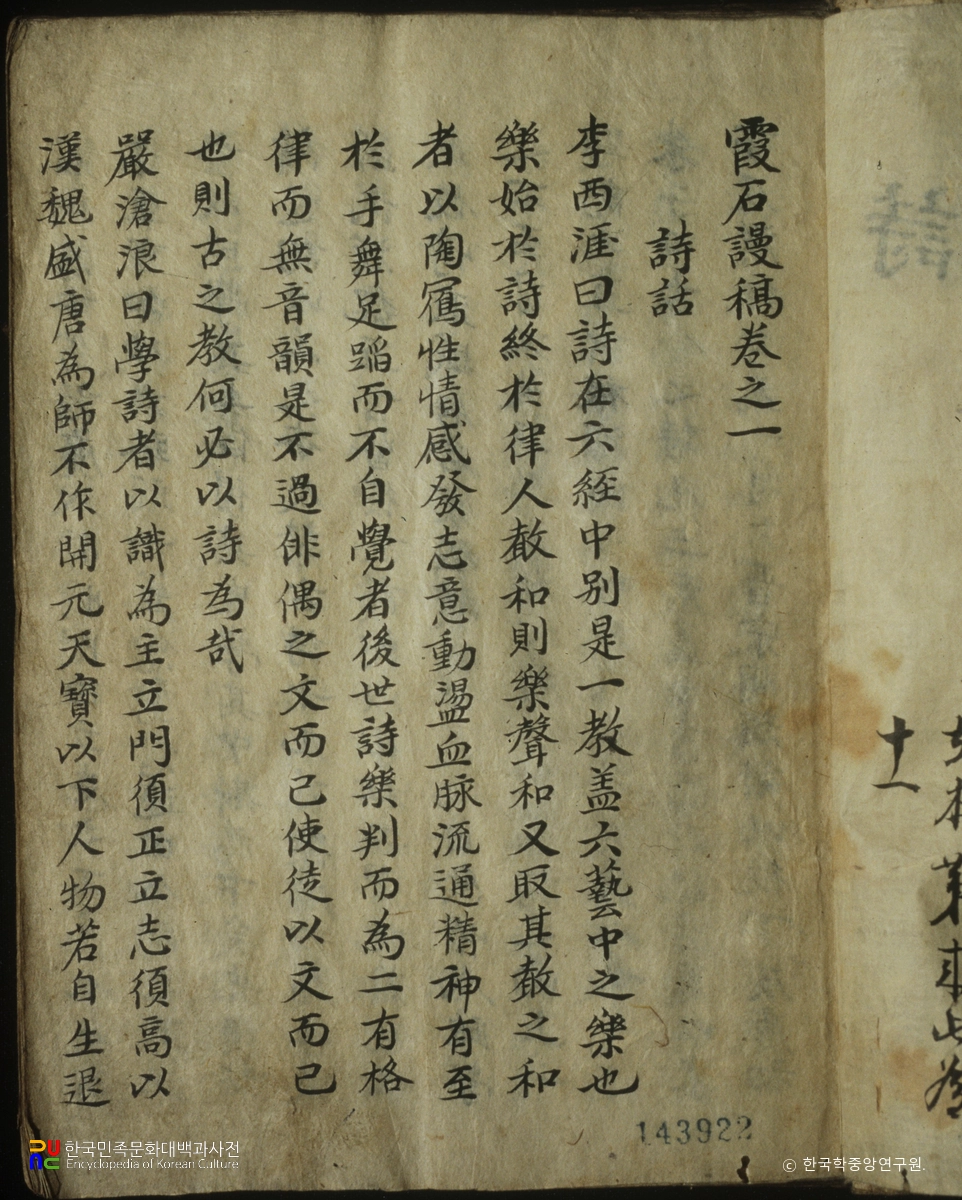 霞石謾稿卷之一
詩話
李西涯曰詩在六經中别是一教盖六藝中之樂也
樂始於詩終於律人聲和則樂聲和又取其聲之和
者以陶寫性情感發志意動盪血脉流通精神有至
於手舞足蹈而不自覺者後世詩樂判而為二有格
律而無音韻是不過俳偶之文而已使徒以文而已
也則古之教何必以詩為哉
嚴滄浪曰學詩者以識為主立門須正立志須高以
漢魏盛唐為師不作開元天寶以下人物若自生退
十一
143922
한국민족문화대백과사전
Encyclopedia of Korean Culture
© 한국학중앙연구원.